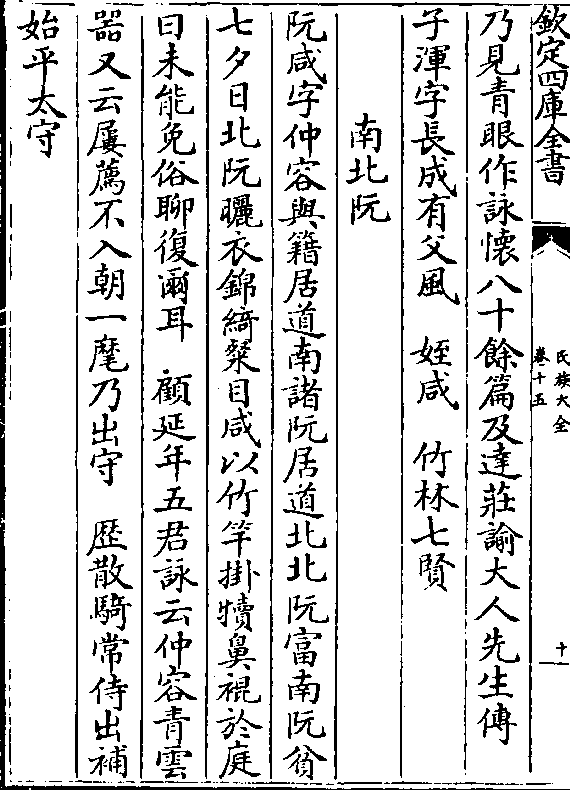 欽定四庫全書
氏族大全
卷十五
十
乃見青眼作詠懷八十餘篇及達莊論大人先生傳
子渾字長成有父風　姪咸　竹林七賢
南北阮
阮咸字仲容與籍居道南諸阮居道北北阮富南阮貧
七夕日北阮曬衣錦綺粲目咸以竹竿掛犢鼻裩於庭
曰未能免俗聊復爾耳　顧延年五君詠云仲容青雲
器又云屢薦不入朝一麾乃出守　歴散騎常侍出補
始平太守